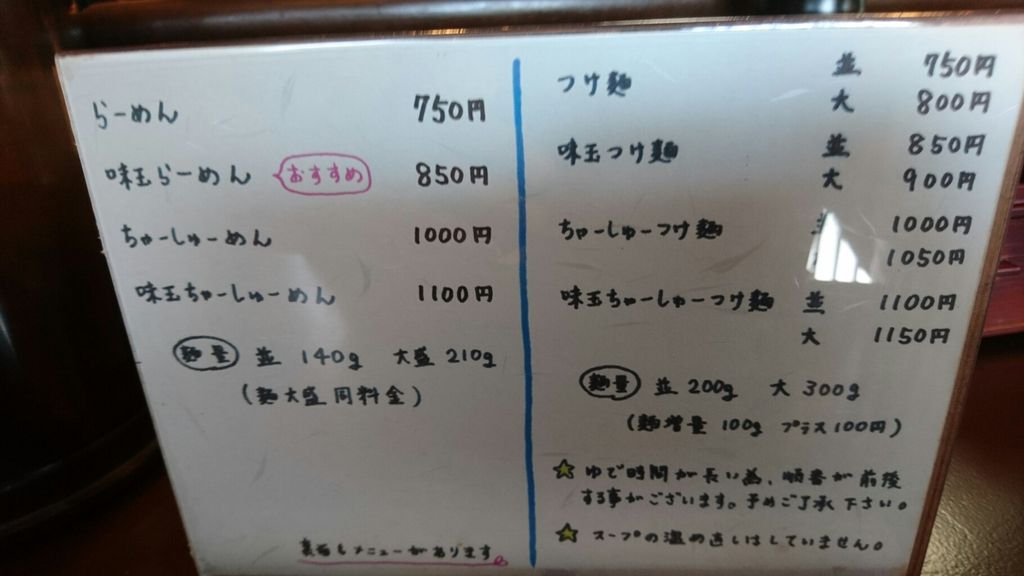 らーめん 750円
味玉らーめん おすすめ 850円
ちゃーしゅーめん 1000円
味玉ちゃーしゅーめん 1100円
麺量 並 140g 大盛 210g
(麺大盛同料金)
裏面もメニューがあります
つけ麺 並 750円
大 800円
味玉つけ麺 並 850円
大 900円
ちゃーしゅーつけ麺 1000円
1050円
味玉ちゃーしゅーつけ麺 並 1100円
大 1150円
麺量 並 200g 大 300g
(麺増量 100g プラス100円)
☆ ゆで時間が長い為、順番が前後
する事がございます。予めご了承下さい。
☆ スープの温め直しはしていません。